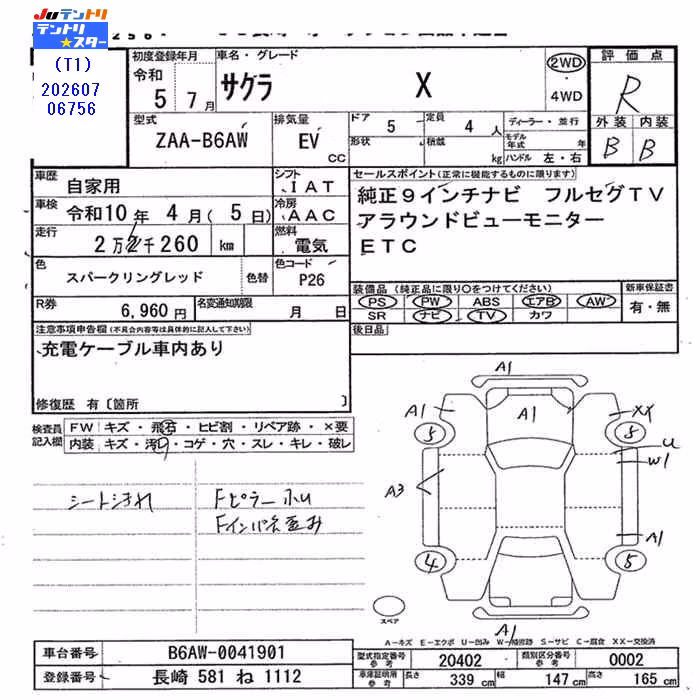 Juテントリ
テントリ★スター
(T1)
202607
06756
初度登録年月
令和
5 7月
車名・グレード
サクラ X
2WD
・
4WD
評価点
R
外装 内装
B B
型式
ZAA-B6AW
排気量
EV
CC
ドア 5
定員 4 人
形状
積載 kg
ディーラー・並行
モデル年式 年
ハンドル 左・右
車歴 自家用
シフト IAT
車検 令和10年 4月( 5日)
冷房 AAC
走行 2万2千260 km
燃料 電気
色 スパークリングレッド 色替
色コード P26
セールスポイント(正常に機能するものに限ります)
純正9インチナビ フルセグTV
アラウンドビューモニター
ETC
装備品 (純正品に限り○をつけてください)
PS PW ABS エアB AW
SR ナビ TV カワ
新車保証書
有・無
R券 6,960円
名変通知期限 月 日
後日品
注意事項申告欄(不具合内容等は具体的に記入して下さい)
充電ケーブル車内あり
修復歴 有〔箇所 〕
検査員記入欄
FW キズ・飛石・ヒビ割・リペア跡・×要
内装 キズ・汚れ・コゲ・穴・スレ・キレ・破レ
シートシミれ
Fピラー
Fインパネ歪み
A1
A1
A1
XX
5
5
U
W1
A3
A1
4
5
A1
スペア
A-キズ E-エクボ U-凹み W-補修跡 S-サビ C-腐食 XX-交換済
車台番号 B6AW-0041901
登録番号 長崎 581 ね 1112
型式指定番号 参考 20402
類別区分番号 参考 0002
車庫証明用 参考
長さ 339 cm
幅 147 cm
高さ 165 cm